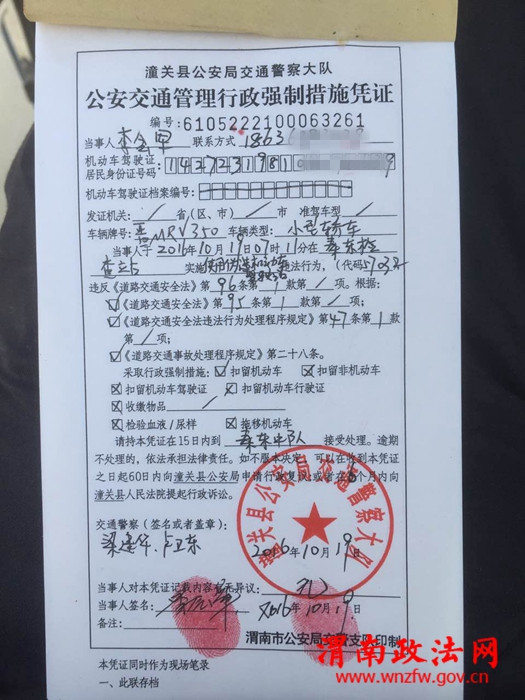 潼关县公安局交通警察大队
公安交通管理行政强制措施凭证
编号:6105222100063261
当事人 联系方式 18636
机动车驾驶证/居民身份证号码: 1427231981 9
机动车驾驶证档案编号:
发证机关: / 省(区、市) / 市 准驾车型 /
车辆牌号: MRV350 车辆类型: 小型轿车
当事人于2016年10月19日07时11分在秦东检
查站 实施使用伪造机动车 违法行为,(代码57032
违反《道路交通安全法》第96条第1款第/项。根据:
☑《道路交通安全法》第95条第1款第/项;
☑《道路交通安全法违法行为处理程序规定》第47条第1款
第/项;
☑《道路交通事故处理程序规定》第二十八条。
采取行政强制措施: ☑扣留机动车 ☒扣留非机动车
☒扣留机动车驾驶证 ☒扣留机动车行驶证
☒收缴物品 /
☒检验血液/尿样 ☒拖移机动车
请持本凭证在15日内到 秦东中队 接受处理。逾期
不处理的,依法承担法律责任。如不服本决定,可以在收到本凭证
之日起60日内向潼关县公安局申请行政复议;或者在6个月内向
潼关县人民法院提起行政诉讼。
潼关县公安局交通警察大队
交通警察(签名或者盖章):
2016年10月19日
当事人对本凭证记载内容有无异议: 无
当事人签名: 2016年10月19日
备注:
渭南市公安局交警支队印制
本凭证同时作为现场笔录
一、此联存档
渭南政法网
www.wnzfw.gov.cn